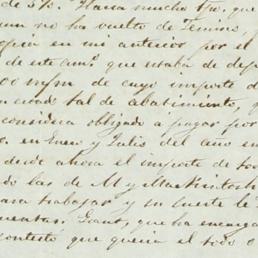 de St. Hara mucho tpo. que
aun no ha vuelto de Temires,
opia en mi anterior por el
de este camo. que estaba de dep
00 mfm de cuyo importe d
ciudad tal de abatimiento, q
considera obligado a pagar por
o. en Enero y Julio del año en
desde ahora el importe de tos
do las de M y Mackintosh
ara trabajar y su suerte le
uentas. Gans, que ha encarga
contestó que queria el todo o